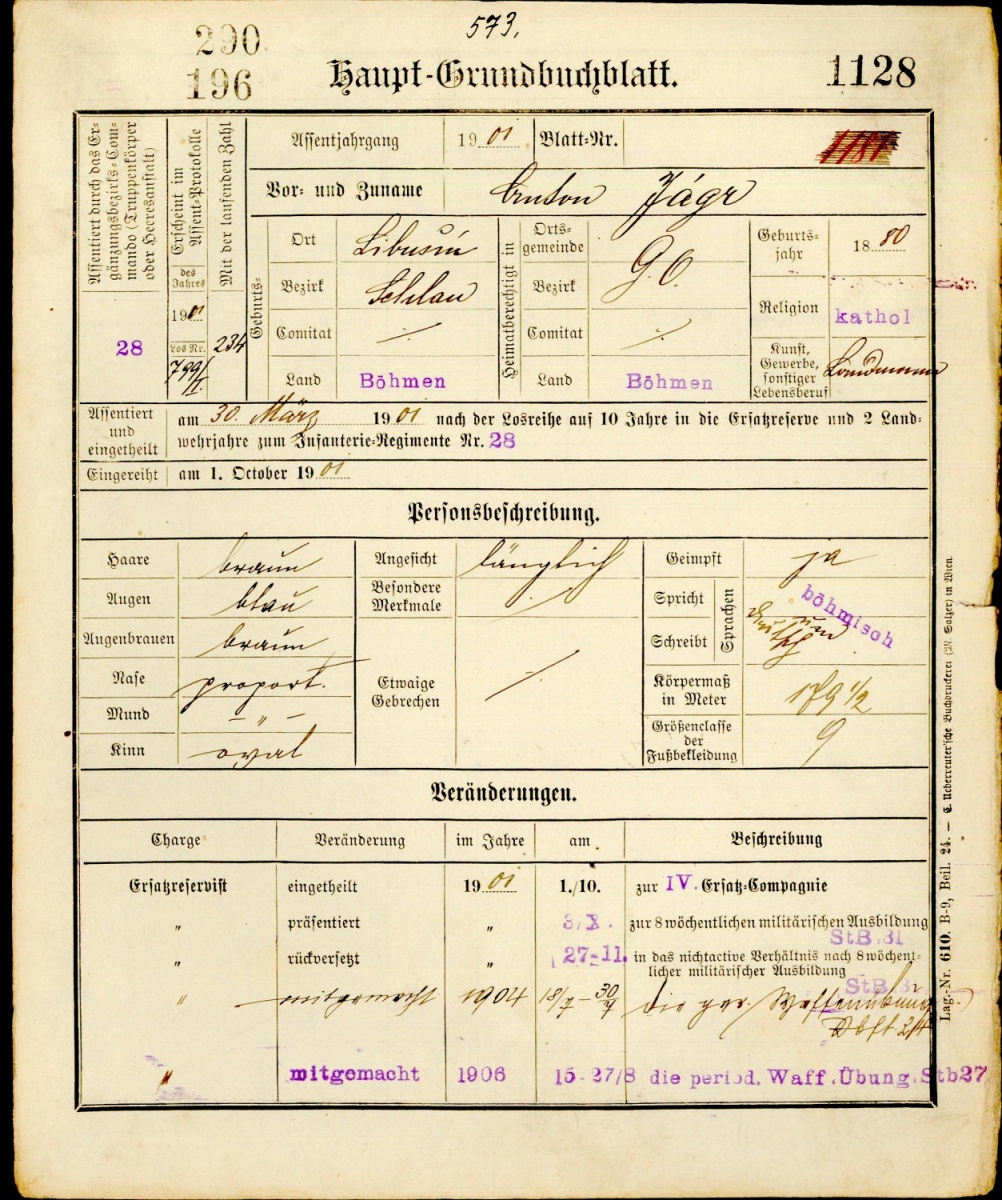 573.
290
196
Haupt-Grundbuchblatt.
1128
Assentiert durch das Er-
gänzungsbezirks-Com-
mando (Truppenkörper
oder Heeresanstalt)
28
Erscheint im
Assent-Protokolle
des
Jahres
1901
Los Nr.
799/II.
Mit der laufenden Zahl
234
Assentjahrgang 1901 Blatt-Nr.
Vor- und Zuname Anton Jágr
Geburts-
Ort Libušín
Bezirk Schlan
Comitat ⁒
Land Böhmen
Heimatberechtigt in
Orts-
gemeinde
G. O.
Bezirk
Comitat ⁒
Land Böhmen
Geburts-
jahr 1880
Religion kathol
Kunst,
Gewerbe,
sonstiger
Lebensberuf
Landmann
Assentiert
und
eingetheilt
am 30. März 1901 nach der Losreihe auf 10 Jahre in die Ersatzreserve und 2 Land-
wehrjahre zum Infanterie-Regimente Nr. 28
Eingereiht am 1. October 1901
Personsbeschreibung.
Haare braun
Augen blau
Augenbrauen braun
Nase proport.
Mund – „ –
Kinn oval
Angesicht länglich
Besondere
Merkmale ⁒
Etwaige
Gebrechen ⁒
Geimpft ja
Spricht
Schreibt
Sprachen
böhmisch
Körpermaß
in Meter 179 1/2
Größenclasse
der
Fußbekleidung
9
Veränderungen.
Charge Veränderung im Jahre am Beschreibung
Ersatzreservist eingetheilt 1901 1./10. zur IV. Ersatz-Compagnie
„ präsentiert „ 3/X. zur 8 wöchentlichen militärischen Ausbildung
StB.31
„ rückversetzt „ 27-11. in das nichtactive Verhältnis nach 8 wöchent-
licher militärischer Ausbildung
StB
„ die Waffenübung
„ mitgemacht 1906 15-27/8 die period. Waff. Übung. Stb27
Lag.-Nr. 610. B-9, Beil. 24. — C. Ueberreuter'sche Buchdruckerei (M. Salzer) in Wien.